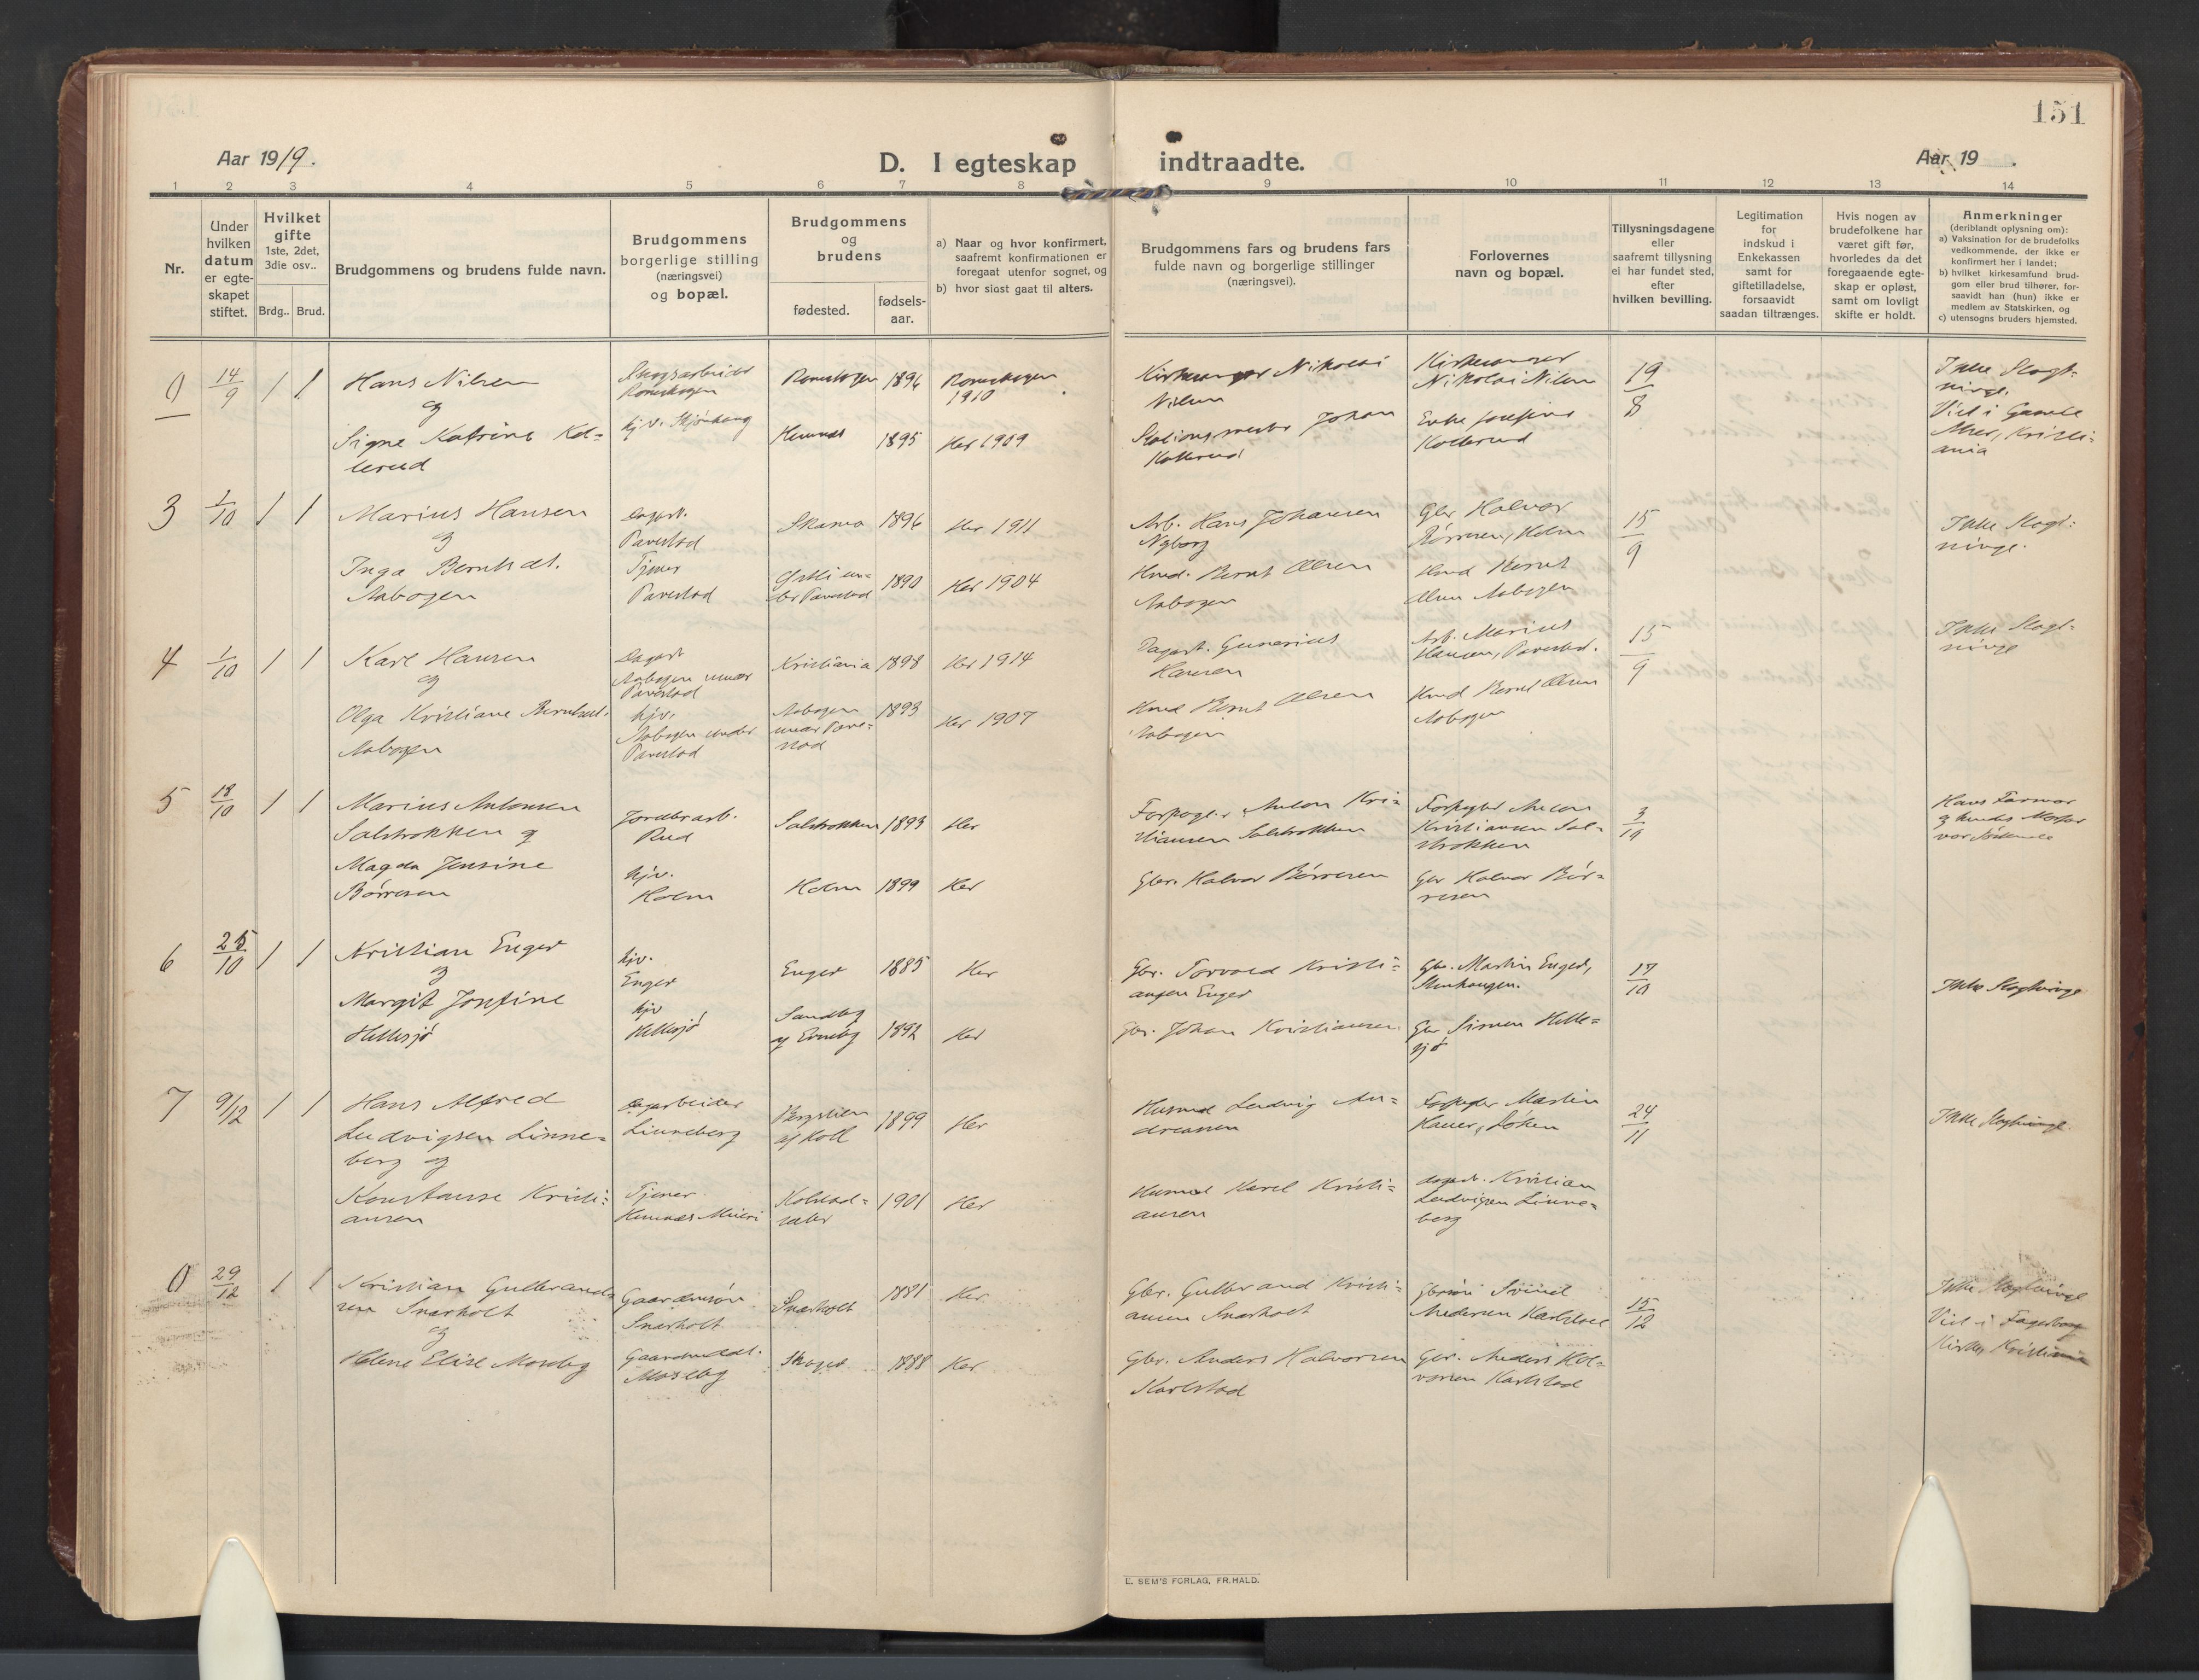 151
Aar 1919.
D. I egteskap indtraadte.
Aar 19 .
1 2 3 4 5 6 7 8 9 10 11 12 13 14
Nr.
Under
hvilken
datum
er egte-
skapet
stiftet.
Hvilket
gifte
1ste, 2det,
3die osv..
Brdg.. Brud.
Brudgommens og brudens fulde navn.
Brudgommens
borgerlige stilling
(næringsvei)
og bopæl.
Brudgommens
og
brudens
fødested.
fødsels-
aar.
a) Naar og hvor konfirmert,
saafremt konfirmationen er
foregaat utenfor sognet, og
b) hvor sidst gaat til alters.
Brudgommens fars og brudens fars
fulde navn og borgerlige stillinger
(næringsvei).
Forlovernes
navn og bopæl.
Tillysningsdagene
eller
saafremt tillysning
ei har fundet sted,
efter
hvilken bevilling.
Legitimation
for
indskud i
Enkekassen
samt for
giftetilladelse,
forsaavidt
saadan tiltrænges.
Hvis nogen av
brudefolkene har
været gift før,
hvorledes da det
foregaaende egte-
skap er opløst,
samt om lovligt
skifte er holdt.
Anmerkninger
(deriblandt oplysning om):
a) Vaksination for de brudefolks
vedkommende, der ikke er
konfirmert her i landet;
b) hvilket kirkesamfund brud-
gom eller brud tilhører, for-
saavidt han (hun) ikke er
medlem av Statskirken, og
c) utensogns bruders hjemsted.
0
14/9
1 1
Hans Nilsen
og
Signe Katrine Kol=
lerud
Skogsarbeider
Romskogen
hjv.
Romskogen 1896
Hemnes 1895
Romskogen
1910
Her 1909
Kirkesanger Nikolai
Nilsen
Stationsmester Johan
Kollerud
Kirkesanger
Nikolai Nilsen
Enke Josefine
Kollerud
19/8
Ikke Slegt=
ninge.
Viet i Gamle
Aker, Kristi=
ania
3
1/10
1 1
Marius Hansen
og
Inga Berntsdt.
Aabogen
Dagarb.
Tjener
1896
1890
Her 1911
Her 1904
Arb. Hans Johansen
Nyborg
Husmd. Bernt Olsen
Aabogen
Gbr Halvor
Børresen, Holm
Husmd Bernt
Olsen Aabogen
15/9
Ikke Slegt=
ninge.
4
1/10
1 1
Karl Hansen
og
Olga Kristiane Berntsdt.
Aabogen
Dagarb
Aabogen under
hjv.
Aabogen under
Kristiania 1898
Aabogen
1893
Her 1914
Her 1907
Dagarb. Gunerius
Hansen
Husmd Bernt Olsen
Aabogen
Arb. Marius
Hansen,
Husmd Bernt Olsen
Aabogen
15/9
Ikke Slegt=
ninge
5
18/10
1 1
Marius Antonsen
og
Magda Jensine
Børresen
Jordbrarb.
Rud
hjv.
Holm
1893
Holm 1899
Her
Her
Anton Kri=
stiansen
Gbr. Halvor Børresen
Anton
Kristiansen
Gbr Halvor Bør=
resen
3/10
Hans Farmor
og hendes Morfar
var Søskende
6
25/10
1 1
Kristian Enger
og
Margit Josefine
Hellesjø
hjv.
Enger
hjv
Hellesjø
Enger 1885
1892
Her
Her
Gbr. Torvald Kristi=
ansen Enger
Gbr. Johan Kristiansen
Gbr. Martin Enger,
Gbr Simen Helle=
sjø
17/10
Ikke Slegtninge
7
9/12
1 1
Hans Alfred
Ludvigsen Linne=
berg og
Konstanse Kristi=
ansen
Dagarbeider
Linneberg
Tjener
Hemnes Meieri
1899
1901
Her
Her
Husmd Ludvig An=
dreassen
Husmd Karel Kristi=
ansen
Martin
Løken
Dagarb. Kristian
Ludvigsen Linne=
berg
24/11
Ikke Slegtninge.
0
29/12
1 1
Kristian Gulbrand=
sen Snarholt
og
Helene Elise Moseby
Gaardmsøn
Snarholt
Moseby
Snarholt 1881
1888
Her
Her
Gbr. Gulbrand Kristi=
ansen Snarholt
Gbr. Anders Halvorsen
Karlstad
Andersen Karlstad
Gbr. Anders Hal=
vorsen Karlstad
15/12
Ikke Slegtninge
Viet i Fagerborg
Kirke, Kristiania
E. SEM'S FORLAG, FR.HALD.